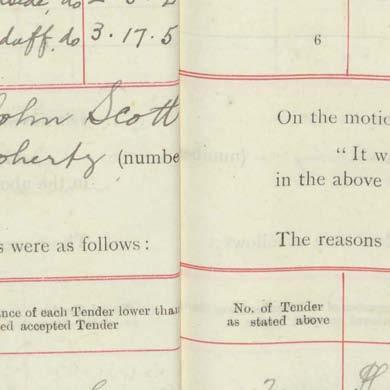 do
duff, do 3.17.5
John Scott
oherty (numbe
s were as follows:
ance of each Tender lower than
ed accepted Tender
6
On the motio
"It w
in the above
The reasons
No. of Tender
as stated above